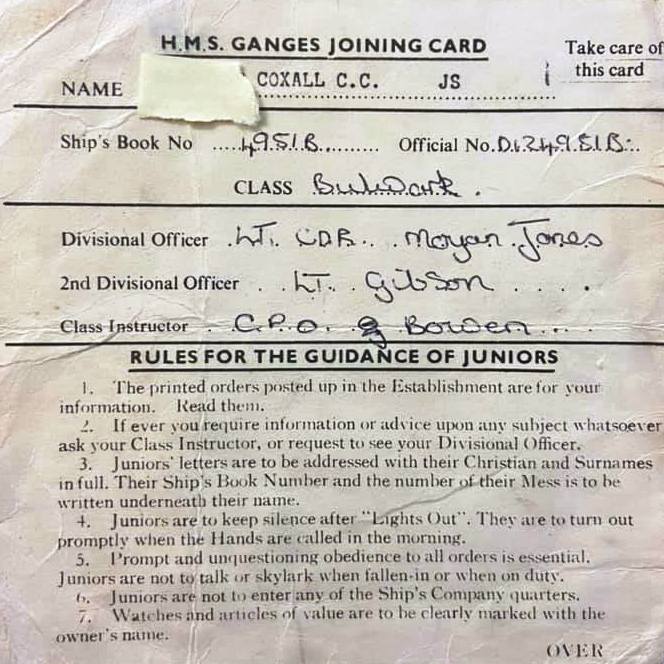 H.M.S. GANGES JOINING CARD
Take care of
this card
NAME COXALL C.C. JS
Ship's Book No .....4951B......... Official No. D.124951B..
CLASS Bulwark.
Divisional Officer . LT. CDR... Moyan Jones
2nd Divisional Officer . . LT. Gibson . . . . .
Class Instructor . C.P.O. Bowen....
RULES FOR THE GUIDANCE OF JUNIORS
1. The printed orders posted up in the Establishment are for your
information. Read them.
2. If ever you require information or advice upon any subject whatsoever
ask your Class Instructor, or request to see your Divisional Officer.
3. Juniors' letters are to be addressed with their Christian and Surnames
in full. Their Ship's Book Number and the number of their Mess is to be
written underneath their name.
4. Juniors are to keep silence after "Lights Out". They are to turn out
promptly when the Hands are called in the morning.
5. Prompt and unquestioning obedience to all orders is essential.
Juniors are not to talk or skylark when fallen-in or when on duty.
6. Juniors are not to enter any of the Ship's Company quarters.
7. Watches and articles of value are to be clearly marked with the
owner's name.
OVER